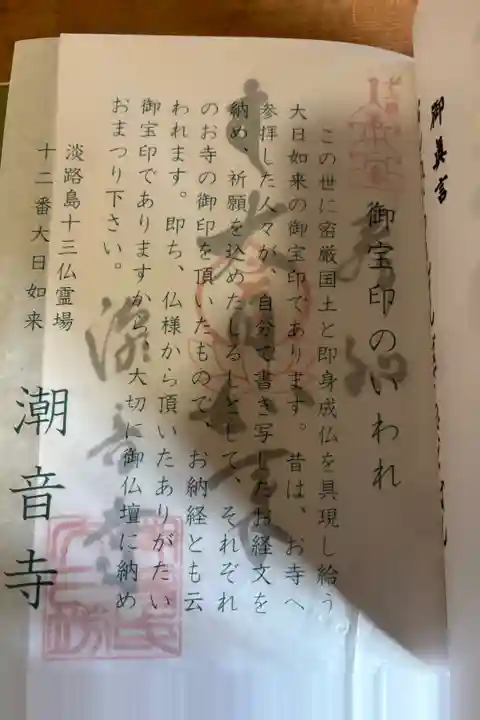 御真言
御宝印のいわれ
この世に密厳国土と即身成仏を具現し給う
大日如来の御宝印であります。昔は、お寺へ
参拝した人々が、自分で書き写したお経文を
納め、祈願を込めたしるしとして、それぞれ
のお寺の御印を頂いたもので、お納経とも云
われます。即ち、仏様から頂いたありがたい
御宝印でありますから、大切に御仏壇に納め
おまつり下さい。
淡路島十三仏霊場
十二番大日如来
潮音寺
奉拝
大日如来
潮音寺